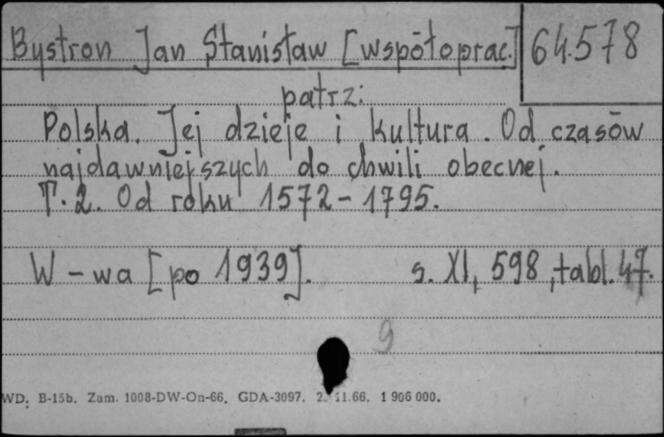 Bystron Jan Stanisław [współoprac.] 64.578
patrz:
Polska. Jej dzieje i kultura. Od czasów
najdawniejszych do chwili obecnej.
T. 2. Od roku 1572-1795.
W-wa [po 1939]. s. XI, 598, tabl. 47.
9
WD. B-15b. Zam. 1008-DW-On-66. GDA-3097. 11.66. 1 906 000.